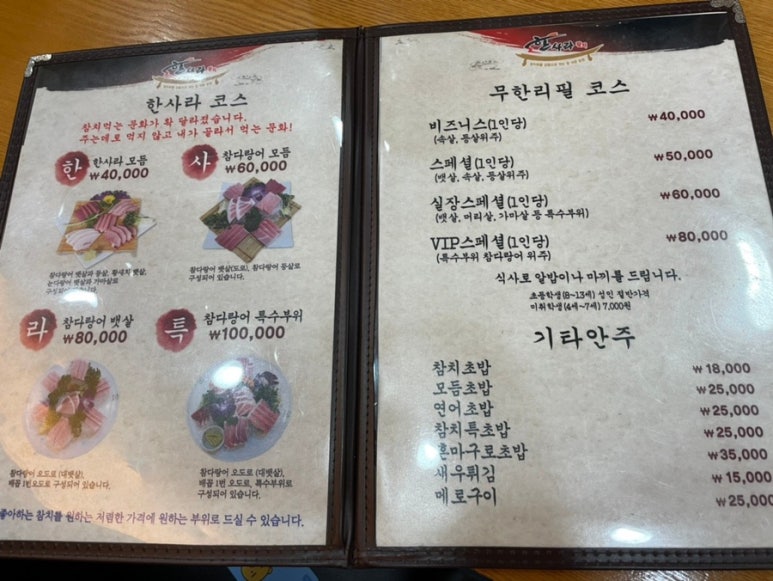 한사라
한사라 코스
참치먹는 문화가 확 달라졌습니다.
주는데로 먹지 않고 내가 골라서 먹는 문화!
한 한사라 모듬
₩40,000
사 참다랑어 모듬
₩60,000
참다랑어 뱃살과 등살, 황새치 뱃살,
눈다랑어 뱃살과 가마살로
구성되어 있습니다.
참다랑어 뱃살(도로), 참다랑어 등살로
구성되어 있습니다.
라 참다랑어 뱃살
₩80,000
특 참다랑어 특수부위
₩100,000
참다랑어 오도로 (대뱃살),
배꼽 1번오도로 구성되어 있습니다.
참다랑어 오도로 (대뱃살),
배꼽 1번 오도로, 특수부위로
구성되어 있습니다.
좋아하는 참치를 원하는 저렴한 가격에 원하는 부위로 드실 수 있습니다.
한사라
무한리필 코스
비즈니스(1인당) ₩40,000
(속살, 등살위주)
스페셜(1인당) ₩50,000
(뱃살, 속살, 등살위주)
실장스페셜(1인당) ₩60,000
(뱃살, 머리살, 가마살 등 특수부위)
VIP스페셜(1인당) ₩80,000
(특수부위 참다랑어 위주)
식사로 알밥이나 마끼를 드립니다.
초등학생(8~13세) 성인 절반가격
미취학생(4세~7세) 7,000원
기타안주
참치초밥 ₩18,000
모듬초밥 ₩25,000
연어초밥 ₩25,000
참치특초밥 ₩25,000
혼마구로초밥 ₩35,000
새우튀김 ₩15,000
메로구이 ₩25,000